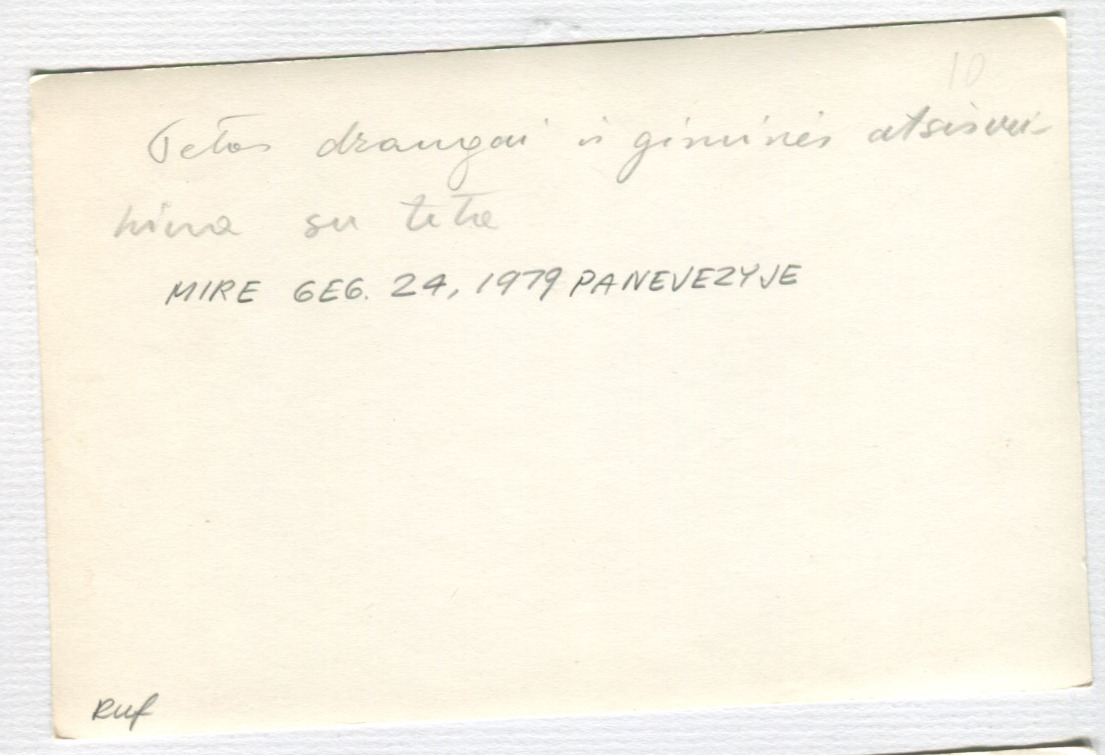 10
Tetos draugai ir giminės atsisvei-
kina su teta
MIRE GEG. 24, 1979 PANEVEZYJE
Ruf